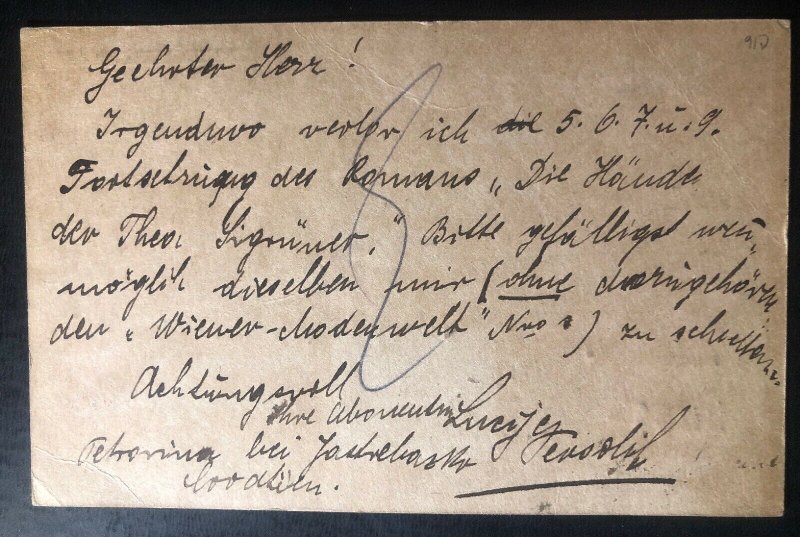 Geehrter Herr!
Irgendwo verlor ich die 5. 6. 7. u. 9.
Fortsetzung des Romans „Die Hände
der Thea Sigrüner." Bitte gefälligst wen
möglich dieselben mir (ohne dazugehören
den „Wiener-Modenwelt" Nros) zu schicken.
Achtungsvoll
Ihre Abonentin Lucija
Petrovina bei Jastrebarsko
Croatien.